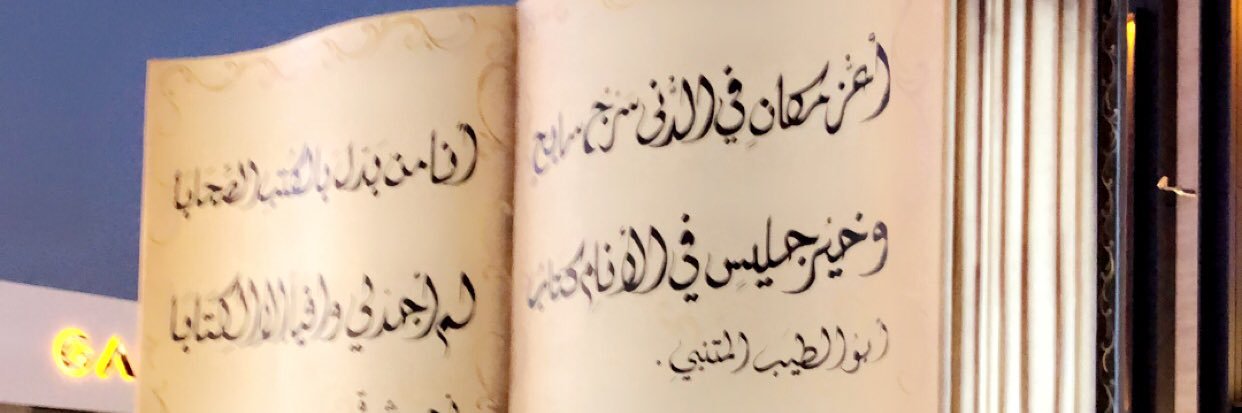 أعز مكان في الدنى سرج سابح
وخير جليس في الأنام كتاب
أبو الطيب المتنبي .
أنا من بدل بالكتب الصحابا
لم أجد لي وافيا إلا الكتابا
GA